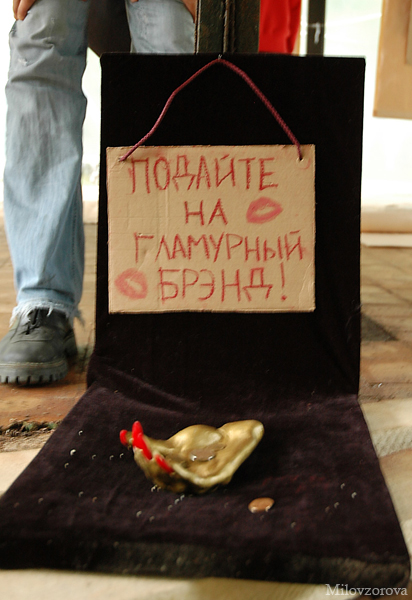 ПОДАЙТЕ
НА
ГЛАМУРНЫЙ
БРЭНД!
Milovzorova